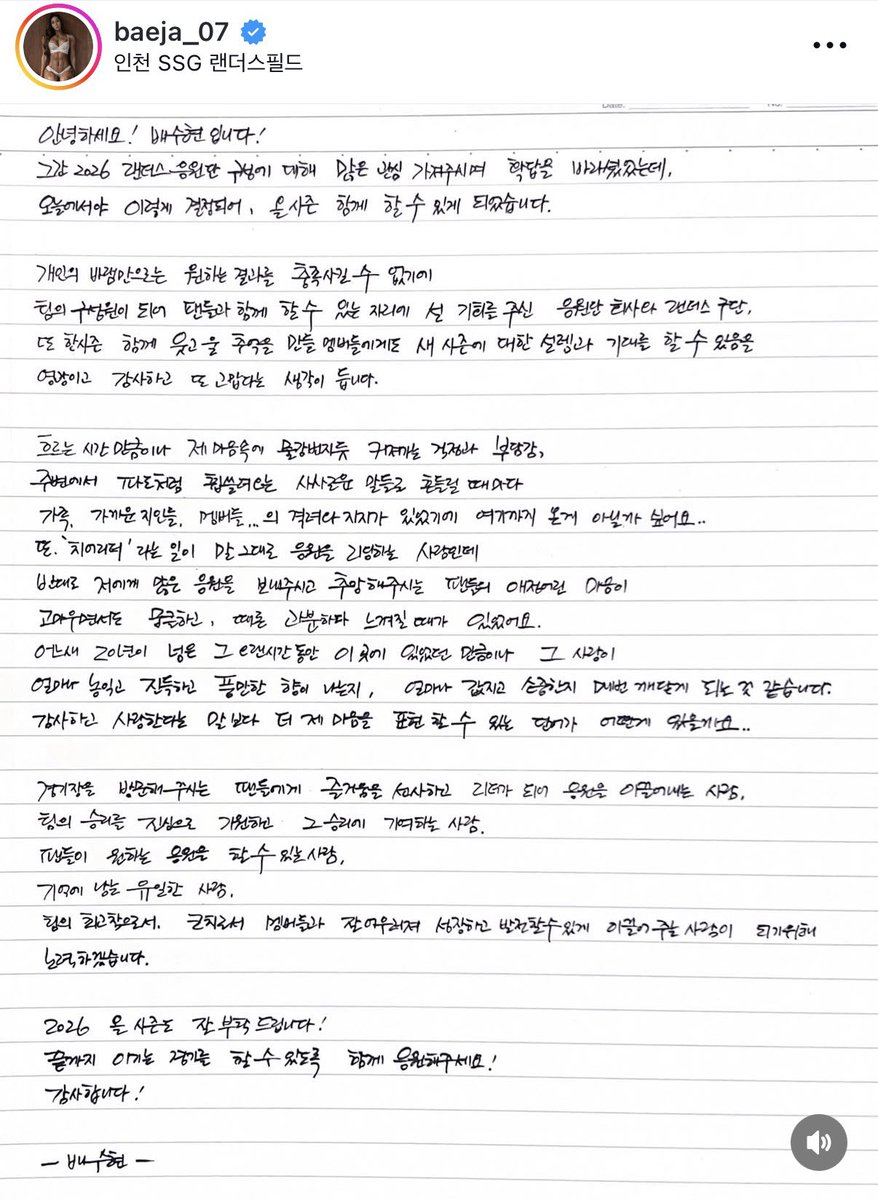 baeja_07
인천 SSG 랜더스필드
안녕하세요! 배수현입니다!
그간 2026 랜더스 응원단 구성에 대해 많은 관심 가져주시며 확답을 바라셨었는데,
오늘에서야 이렇게 결정되어, 올시즌 함께 할 수 있게 되었습니다.
개인의 바램만으로는 원하는 결과를 충족시킬 수 없기에
팀의 구성원이 되어 팬들과 함께 할 수 있는 자리에 설 기회를 주신 응원단 회사와 랜더스 구단,
또 한시즌 함께 웃고 울 추억을 만들 멤버들에게도 새 시즌에 대한 설렘과 기대를 할 수 있음을
영광이고 감사하고 또 고맙다는 생각이 듭니다.
흐르는 시간만큼이나 제 마음속에 물감번지듯 커져가는 걱정과 부담감,
주변에서 파도처럼 휩쓸려오는 사사로운 말들로 흔들릴 때마다
가족, 가까운 지인들, 멤버들...의 격려와 지지가 있었기에 여기까지 온게 아닐까 싶어요..
또, '치어리더' 라는 일이 말 그대로 응원을 리딩하는 사람인데
반대로 저에게 많은 응원을 보내주시고 추앙해주시는 팬들의 애정어린 마음이
고마우면서도 뭉클하고, 때론 과분하다 느껴질 때가 있었어요.
어느새 20년이 넘은 그 오랜시간 동안 이 곳에 있었던 만큼이나 그 사랑이
얼마나 농익고 진득하고 풍만한 향이 나는지, 얼마나 값지고 소중한지 매번 깨닫게 되는 것 같습니다.
감사하고 사랑한다는 말 보다 더 제 마음을 표현 할 수 있는 단어가 어떤게 있을까요..
경기장을 방문해주시는 팬들에게 즐거움을 선사하고 리더가 되어 응원을 이끌어내는 사람,
팀의 승리를 진심으로 기원하고 그 승리에 기여하는 사람.
팬들이 원하는 응원을 할 수 있는 사람,
기억에 남는 유일한 사람,
팀의 최고참으로서, 코치로서 멤버들과 잘 어우러져 성장하고 발전할 수 있게 이끌어 주는 사람이 되기위해
노력하겠습니다.
2026 올 시즌도 잘 부탁드립니다!
끝까지 이기는 경기를 할 수 있도록 함께 응원해주세요!
감사합니다!
- 배수현 -